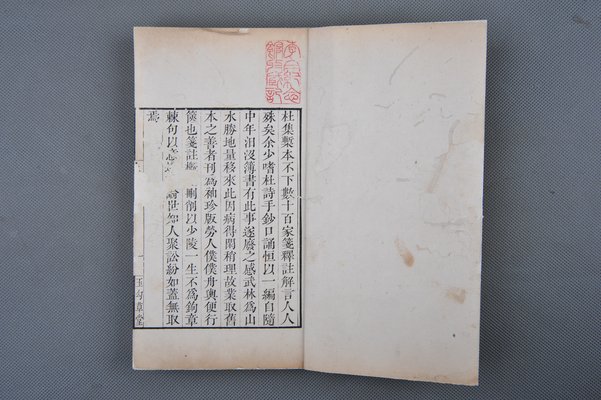 杜集槧本不下數十百家箋釋註解言人人
殊矣余少嗜杜詩手鈔口誦恒以一編自隨
中年汩沒簿書有此事遂廢之感武林爲山
水勝地量移來此因病得閒稍理故業取舊
本之善者刊爲袖珍版勞人僕僕舟輿便行
篋也箋註 刪削以少陵一生不爲鉤章
棘句以 論世知人聚訟紛如蓋無取
焉
玉句草堂